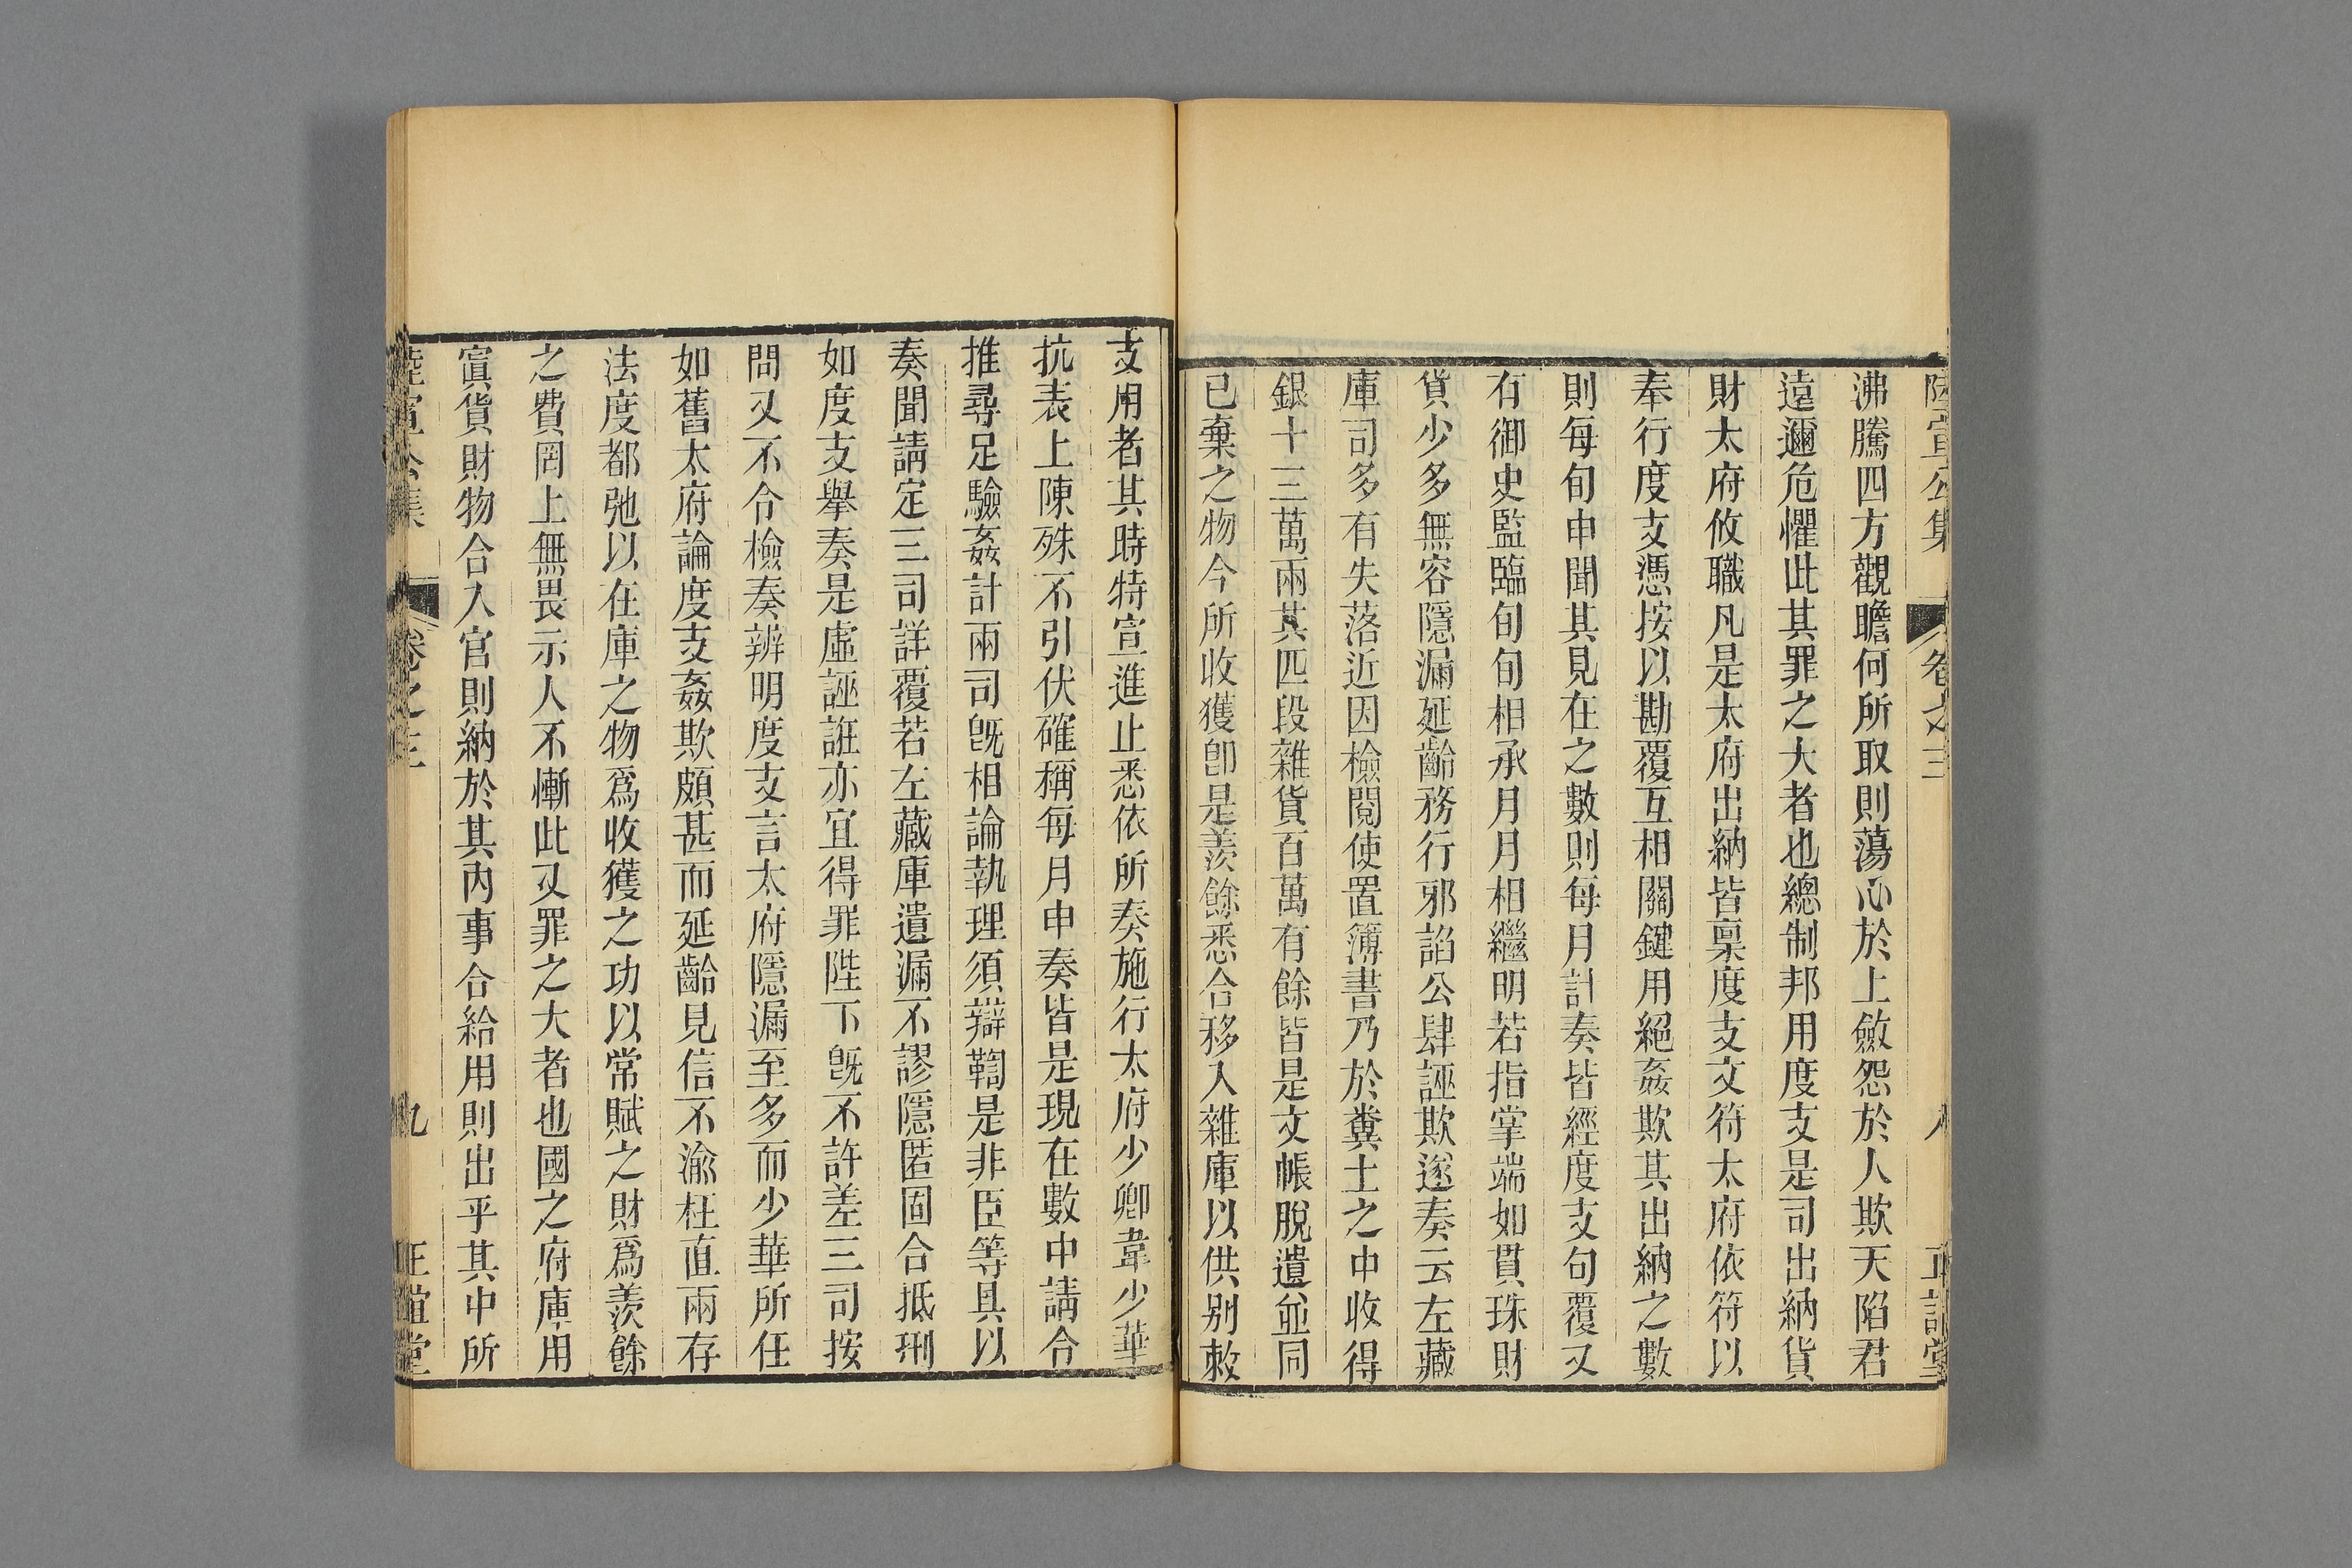 陸宣公集 卷之三 八 正誼堂
沸騰四方觀瞻何所取則蕩心於上斂怨於人欺天陷君
遠邇危懼此其罪之大者也總制邦用度支是司出納貨
財太府攸職凡是太府出納皆稟度支文符太府依符以
奉行度支憑按以勘覆互相關鍵用絕姦欺其出納之數
則每旬申聞其見在之數則每月計奏皆經度支句覆又
有御史監臨旬旬相承月月相繼明若指掌端如貫珠財
貨少多無容隱漏延齡務行邪諂公肆誣欺遂奏云左藏
庫司多有失落近因檢閱使置簿書乃於糞土之中收得
銀十三萬兩其匹段雜貨百萬有餘皆是文帳脫遺並同
已棄之物今所收獲卽是羨餘悉合移入雜庫以供别敕
支用者其時特宣進止悉依所奏施行太府少卿韋少華
抗表上陳殊不引伏確稱每月申奏皆是現在數中請令
推尋足驗姦計兩司旣相論執理須辯鞫是非臣等具以
奏聞請定三司詳覆若左藏庫遺漏不謬隱匿固合抵刑
如度支舉奏是虛誣誑亦宜得罪陛下旣不許差三司按
問又不令檢奏辨明度支言太府隱漏至多而少華所任
如舊太府論度支姦欺頗甚而延齡見信不渝枉直兩存
法度都弛以在庫之物爲收獲之功以常賦之財爲羨餘
之費罔上無畏示人不慚此又罪之大者也國之府庫用
寘貨財物合入官則納於其內事合給用則出乎其中所
陸宣公集 卷之三 九 正誼堂